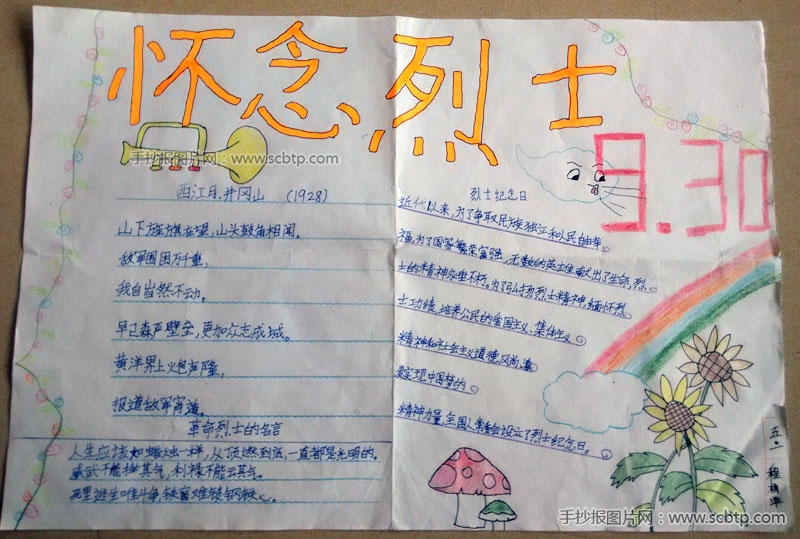 怀念烈士
9.30
手抄报图片网：www.scbtp.com
西江月.井冈山 （1928）
山下旌旗在望，山头鼓角相闻。
敌军围困万千重，
我自岿然不动。
早已森严壁垒，更加众志成城。
黄洋界上炮声隆，
报道敌军宵遁。
革命烈士的名言
人生应该如蜡烛一样，从顶燃到底，一直都是光明的。
威武不能挫其气，利禄不能云其气。
死里逃生唯斗争，铁窗难锁钢铁心。
烈士纪念日
近代以来，为了争取民族独立和人民自由幸
福，为了国家繁荣富强，无数的英雄献出了生命，烈
士的精神永垂不朽。为了弘扬烈士精神，缅怀烈
士功绩，培养公民的爱国主义、集体主义
精神和社会主义道德风尚，凝
聚实现中国梦的
精神力量，全国人常委会设立了烈士纪念日。
五二
程
手抄报图片网：www.scbtp.com